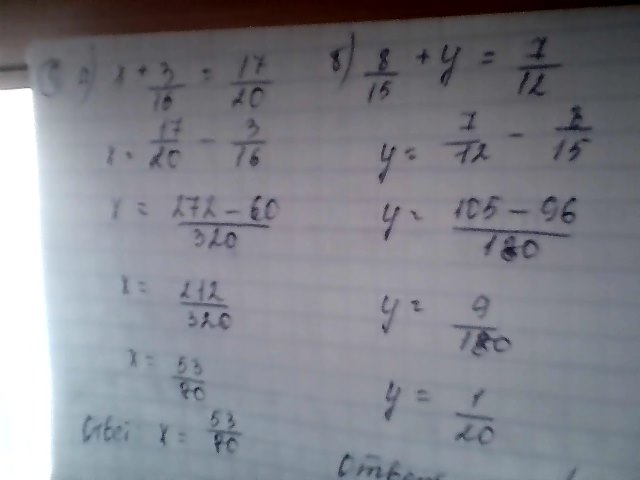 а) x + 3/16 = 17/20
x = 17/20 - 3/16
x = 272 - 60/320
x = 212/320
x = 53/80
Ответ x = 53/80
б) 8/15 + y = 7/12
y = 7/12 - 8/15
y = 105 - 96/180
y = 9/180
y = 1/20
Ответ